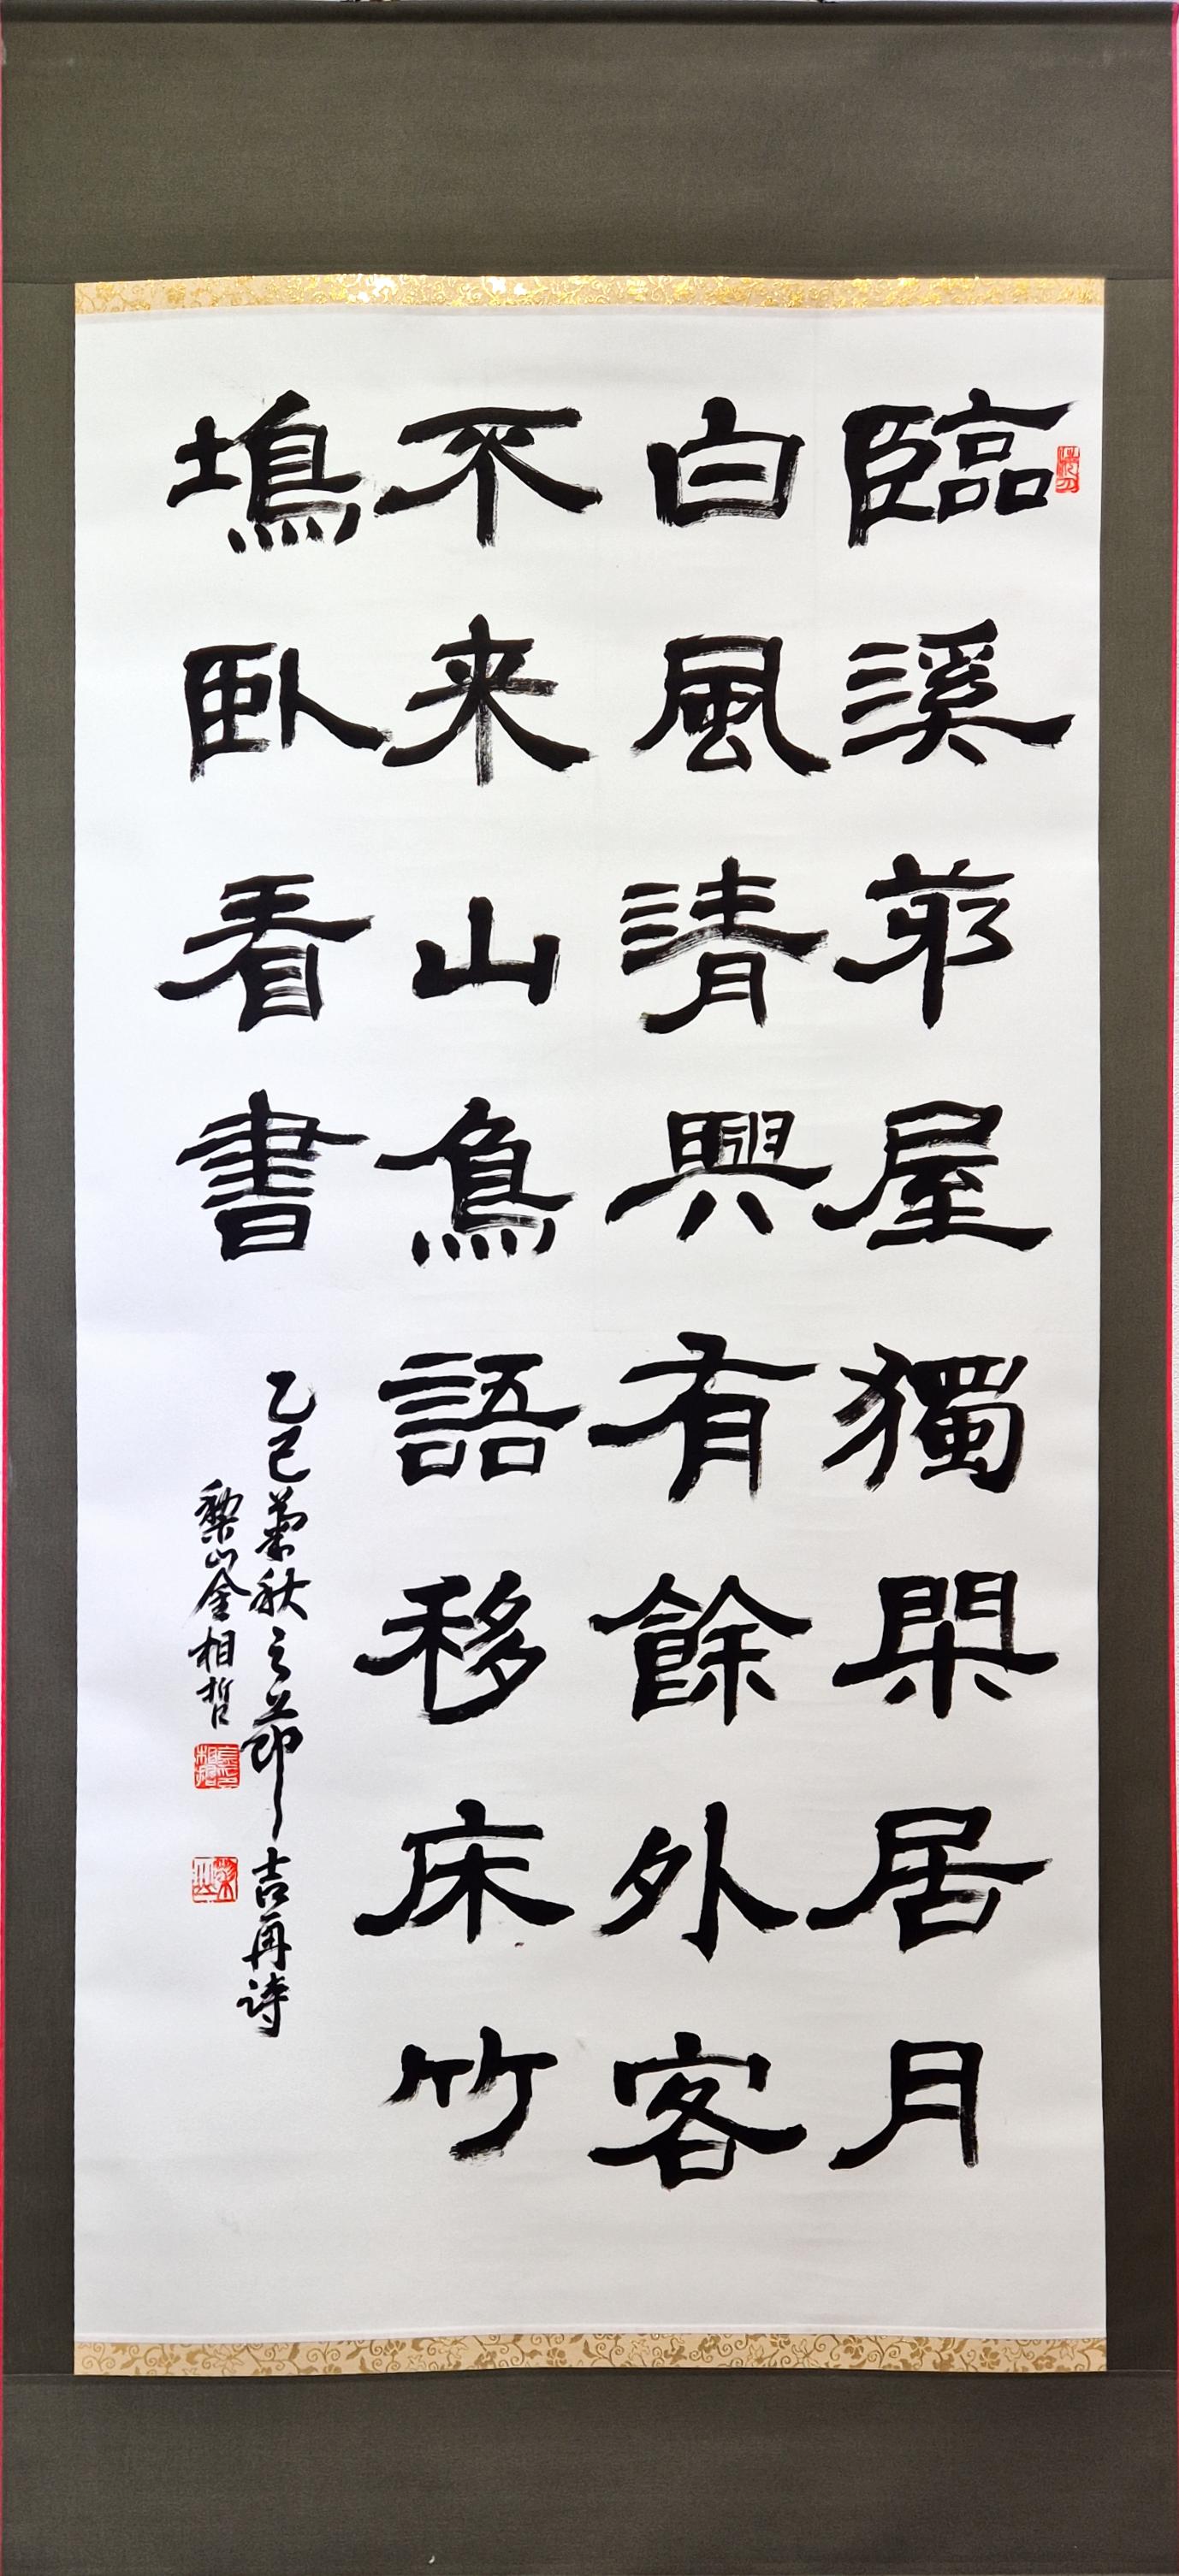 臨溪茅屋獨閑居月
白風清興有餘外客
不来山鳥語移床竹
塢臥看書
乙巳菊秋之節吉再詩
梨山金相哲